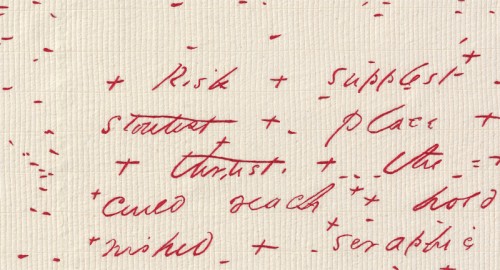 + Risk + supplest +
stoutest + - place +
+ thrust. + the = +
+ could reach + + hold
+ wished + + seraphic